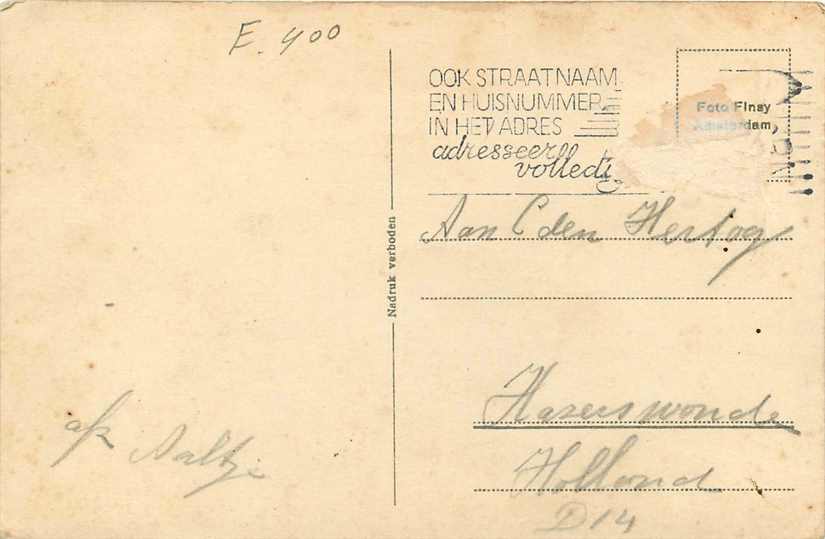 E. 400
OOK STRAATNAAM
EN HUISNUMMER
IN HET ADRES
adresseer
volledi
Foto Finsy
Amsterdam
Aan C den Hertog
Nadruk verboden
Hazerswoude
Holland
D14
afz Aaltje